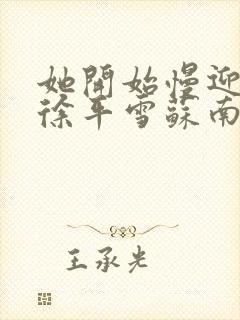 她開始慢迎
徐平雪蘇南
王承光